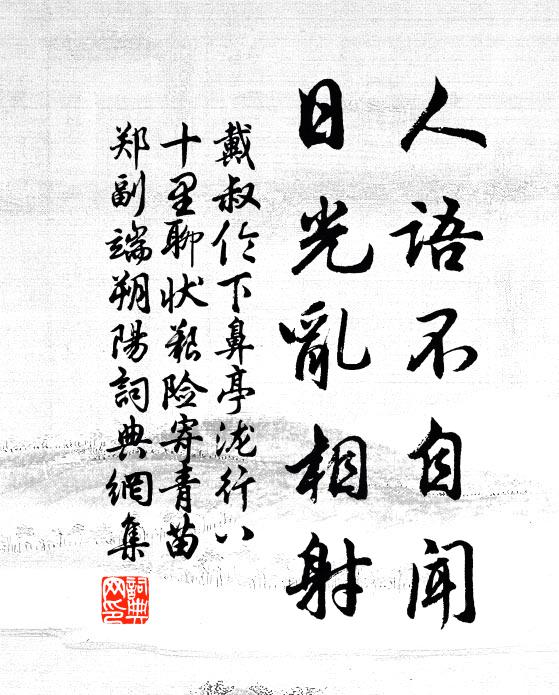 人語不自聞
日光亂相射
戴叔伦下鼻亭泷行八
十里聊状艱险寄青苗
郑副端朔陽詞典網集
詞典
网印